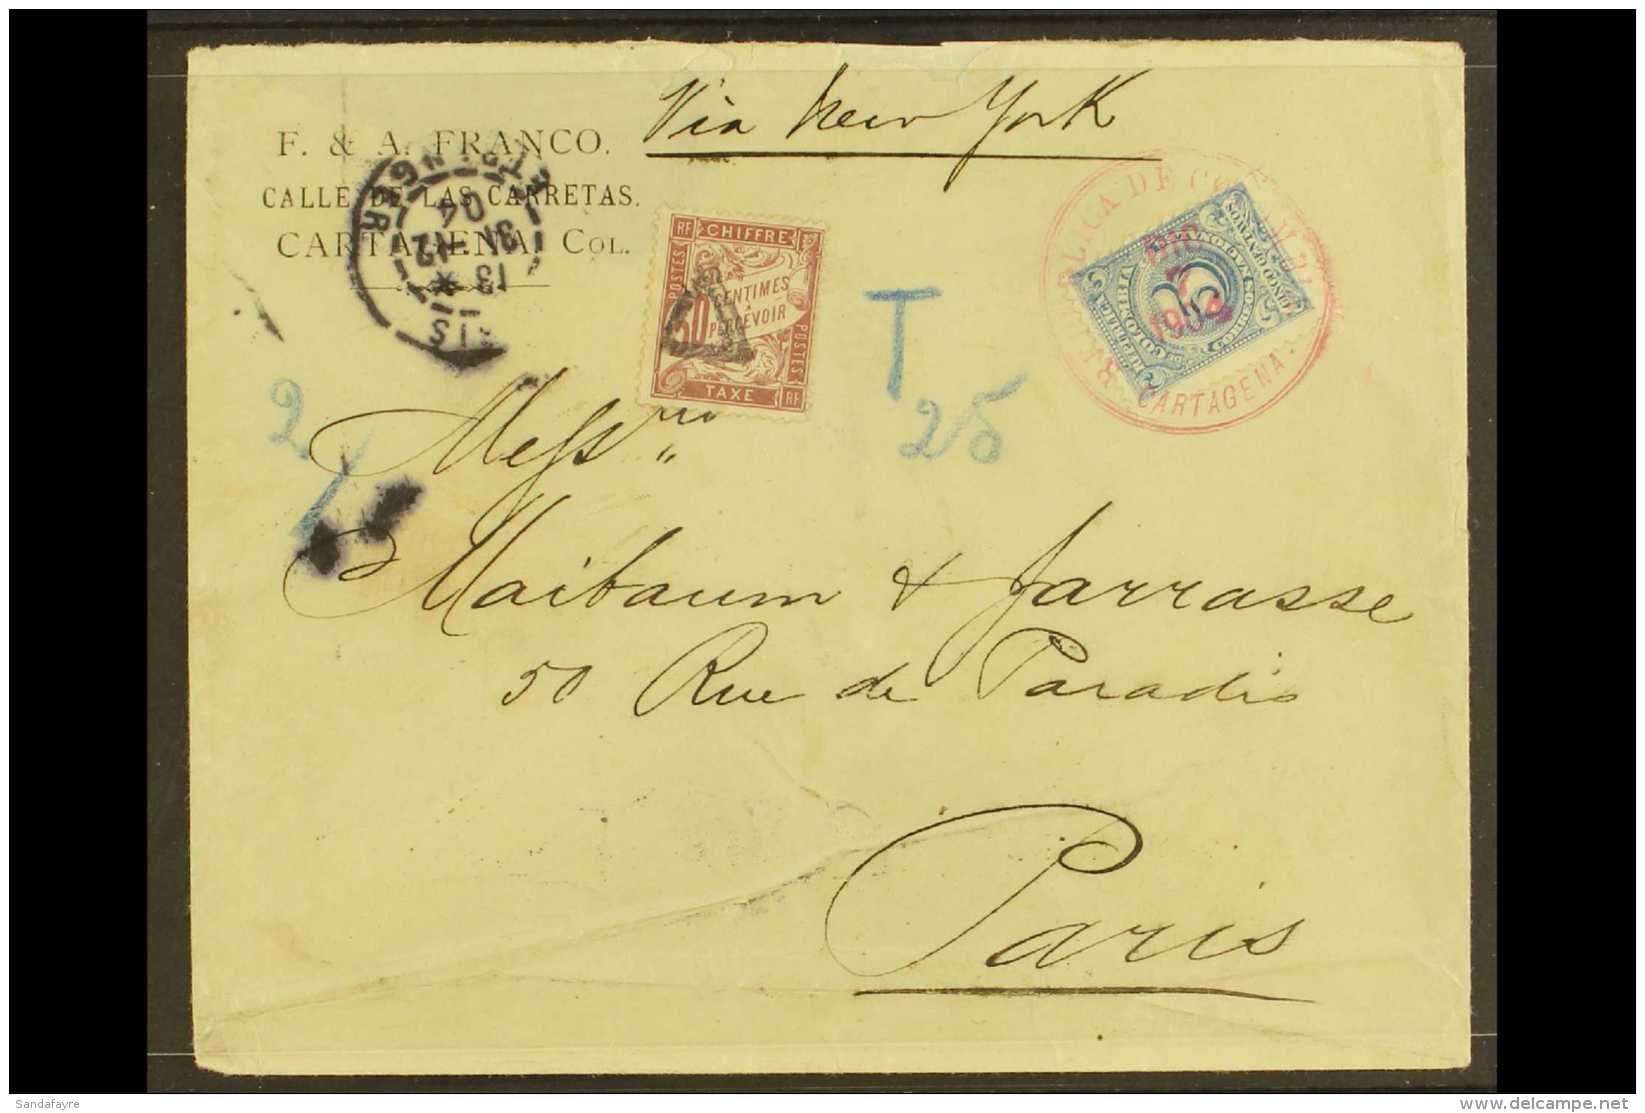 Via New York
F. & A. FRANCO.
CALLE DE LAS CARRETAS.
CARTAGENA, Col.
RF CHIFFRE
POSTES
50 CENTIMES
A
PERCEVOIR
POSTES
TAXE RF
T
25
CARTAGENA.
DIC
2
Messrs
Maibaum & Jarrasse
50 Rue de Paradis
Paris
Sandafayre
www.delcampe.net